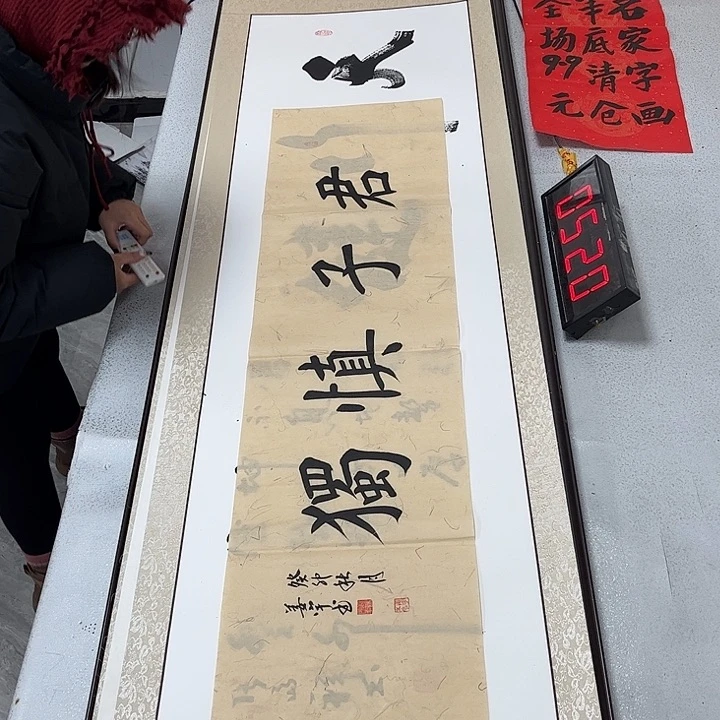 君子慎獨
癸卯秋月
名家字画
年底清仓
全场99元
0520